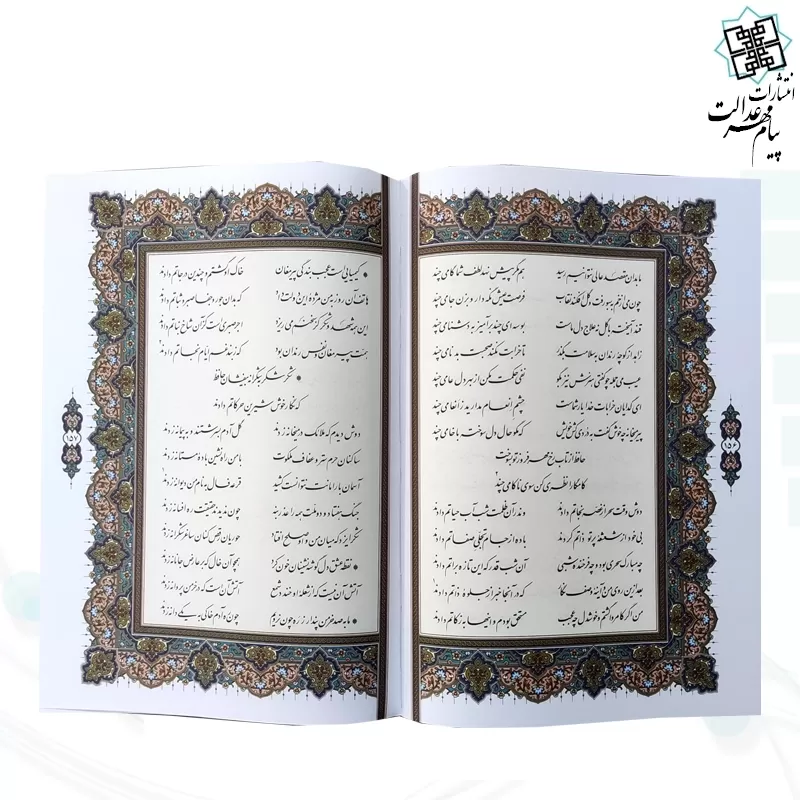 انتشارات
پیام مهر عدالت
ما بدان مقصد عالی نتوانیم رسید هم مگر پیش نهد لطف شما گامی چند
چون می از خم به سبو رفت و گل افکند نقاب فرصت عیش نگه دار و بزن جامی چند
قند آمیخته با گل نه علاج دل ماست بوسه ای چند برآمیز به دشنامی چند
زاهد از کوچه رندان به سلامت بگذر تا خرابت نکند صحبت بدنامی چند
عیب می جمله چو گفتی هنرش نیز بگو نفی حکمت مکن از بهر دل عامی چند
ای گدایان خرابات خدا یار شماست چشم انعام مدارید ز انعامی چند
پیر میخانه چه خوش گفت به دردی کش خویش که مگو حال دل سوخته با خامی چند
حافظ از تاب رخ مهر فروز تو بسوخت
کامکارا نظری کن سوی ناکامی چند
دوش وقت سحر از غصه نجاتم دادند وندر آن ظلمت شب آب حیاتم دادند
بی خود از شعشعه پرتو ذاتم کردند باده از جام تجلی صفاتم دادند
چه مبارک سحری بود و چه فرخنده شبی آن شب قدر که این تازه براتم دادند
بعد ازین روی من و آینه وصف نگار که در آنجا خبر از جلوه ذاتم دادند
من اگر کامروا گشتم و خوشدل چه عجب مستحق بودم و اینها به زکاتم دادند
۱۵۶
کیمیایی ست عجب بندگی پیر مغان خاک او گشتم و چندین درجاتم دادند
هاتف آن روز به من مژده این دولت داد که بدان جور و جفا صبر و ثباتم دادند
این همه شهد و شکر کز سخنم می ریزد اجر صبری ست کز آن شاخ نباتم دادند
همت پیر مغان و نفس رندان بود که ز بند غم ایام نجاتم دادند
شکر شکر به شکرانه بیفشان حافظ
که نگار خوش شیرین حرکاتم دادند
دوش دیدم که ملائک در میخانه زدند گل آدم بسرشتند و به پیمانه زدند
ساکنان حرم ستر و عفاف ملکوت با من راه نشین باده مستانه زدند
آسمان بار امانت نتوانست کشید قرعه فال به نام من دیوانه زدند
جنگ هفتاد و دو ملت همه را عذر بنه چون ندیدند حقیقت ره افسانه زدند
شکر ایزد که میان من و او صلح افتاد حوریان رقص کنان ساغر شکرانه زدند
نقطه عشق دل گوشه نشینان خون کرد همچو آن خال که بر عارض جانانه زدند
آتش آن نیست که از شعله او خندد شمع آتش آن است که در خرمن پروانه زدند
ما به صد خرمن پندار ز ره چون نرویم چون ره آدم خاکی به یکی دانه زدند
۱۵۷